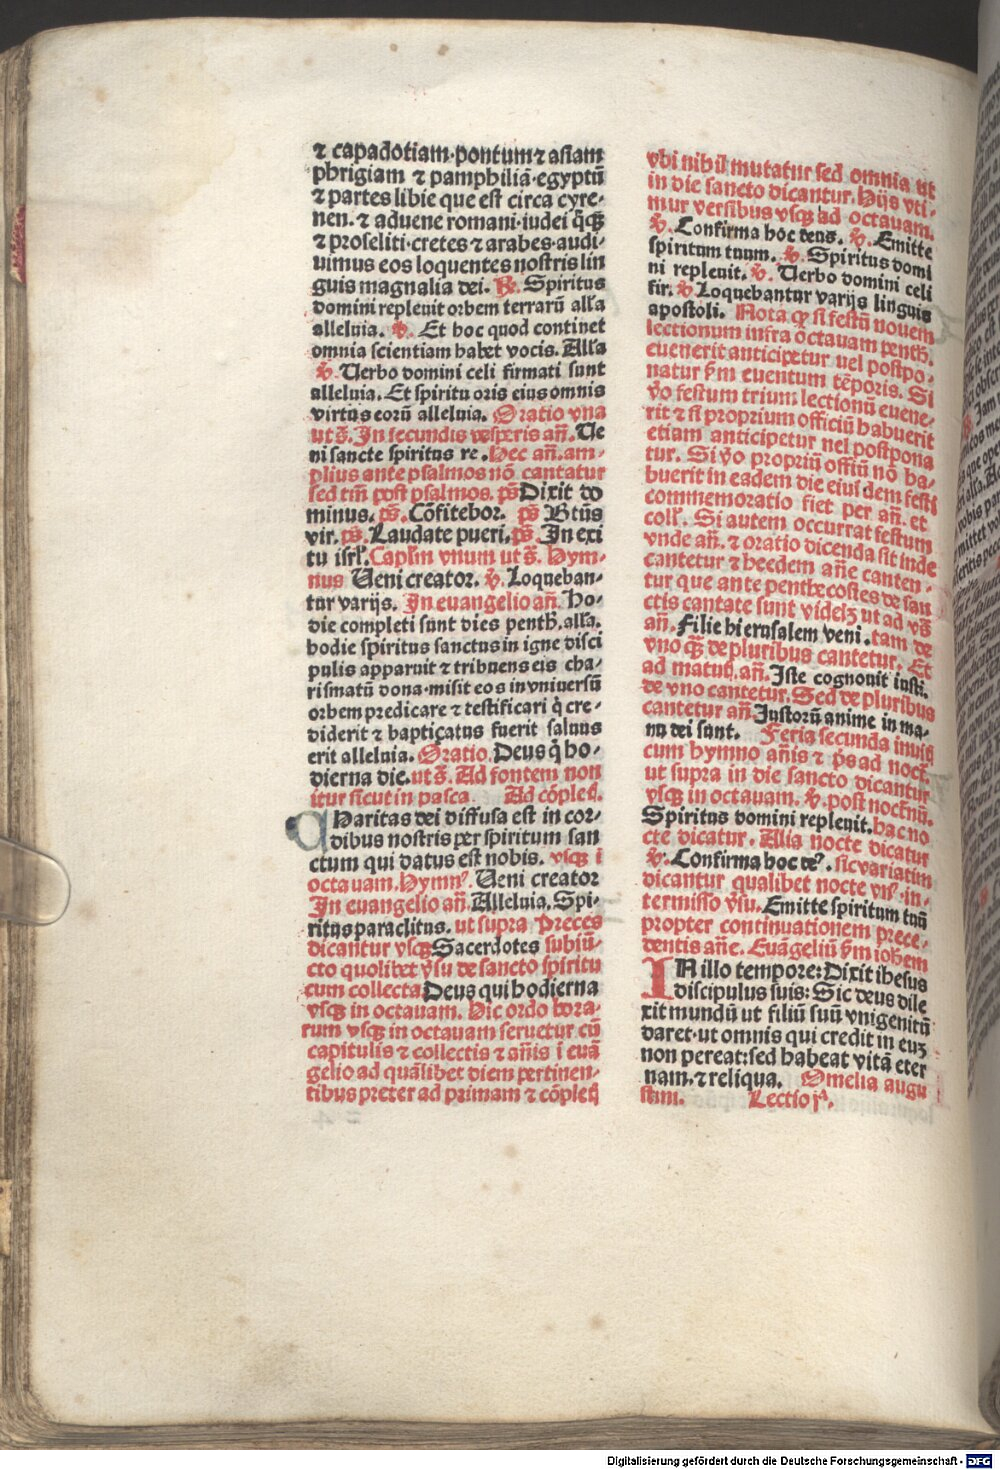 ⁊ capadotiam·pontum ⁊ asiam
phrigiam ⁊ pamphiliā·egyptū
⁊ partes libie que est circa cyre-
nen. ⁊ aduene romani·iudei q̄q̄
⁊ proseliti·cretes ⁊ arabes·audi-
uimus eos loquentes nostris lin
guis magnalia dei. ℟. Spiritus
domini repleuit orbem terrarū alľa
alleluia. ℣. Et hoc quod continet
omnia scientiam habet vocis. Alľa
℣. Verbo domini celi firmati sunt
alleluia. Et spiritu oris eius omnis
virtus eorū alleluia. Oratio vna
ut s̄. In secundis vesperis añ. Ve
ni sancte spiritus re. Hec añ. am-
plius ante psalmos nō cantatur
sed tm̄ post psalmos. ps̄ Dixit do
minus. ps̄. Cōfitebor. ps̄ Btūs
vir. ps̄. Laudate pueri. ps̄. In exi
tu isrľ. Caplm vnum ut s̄. Hym-
nus Veni creator. ℣. Loqueban-
tur varijs. In euangelio añ. Ho-
die completi sunt dies penth̄. alľa.
hodie spiritus sanctus in igne disci
pulis apparuit ⁊ tribuens eis cha-
rismatū dona·misit eos in vniuersū
orbem predicare ⁊ testificari q̇ cre-
diderit ⁊ baptiçatus fuerit saluus
erit alleluia. Oratio. Deus q̇ ho-
dierna die. ut s̄. Ad fontem non
itur sicut in pasca Ad cōpleť.
CHaritas dei diffusa est in cor-
dibus nostris per spiritum san
ctum qui datus est nobis. vsq̄ ī
octauam. Hymnꝰ. Veni creator
In euangelio añ. Alleluia. Spi-
ritus paraclitus. ut supra Preces
dicantur vsq̄ Sacerdotes subiū-
cto quolibet v̄su de sancto spiritu
cum collecta Deus qui hodierna
vsq̄ in octauam. Hic ordo hora-
rum vsq̄ in octauam seruetur cū
capitulis ⁊ collectis ⁊ añis ī euā
gelio ad quālibet diem pertinen-
tibus preter ad primam ⁊ cōpleť
vbi nihil mutatur sed omnia ut
in die sancto dicantur. Hijs vti-
mur versibus vsq̄ ad octauam.
℣. Confirma hoc deus. ℣. Emitte
spiritum tuum. ℣. Spiritus domi
ni repleuit. ℣. Verbo domini celi
fir. ℣. Loquebantur varijs linguis
apostoli. Nota q̄ si festū nouem
lectionum infra octauam penth̄.
euenerit anticipetur uel postpo-
natur s̄m euentum tēporis. Si
v̄o festum trium lectionū euene-
rit ⁊ si proprium officiū habuerit
etiam anticipetur uel postpona
tur. Si v̄o propriū offiū nō ha-
buerit in eadem die eiusdem festi
commemoratio fiet per añ. et
colľ. Si autem occurrat festum
vnde añ. ⁊ oratio dicenda sit inde
cantetur ⁊ heedem añe canten-
tur que ante penthecostes de san
ctis cantate sunt videlꝫ ut ad v̄s̄
añ. Filie hierusalem veni. tam de
vno q̄ de pluribus cantetur. Et
ad matuť. añ. Iste cognouit iusti.
de vno cantetur. Sed de pluribus
cantetur añ Iustorū anime in ma-
nu dei sunt. Feria secunda inuiť
cum hymno añis ⁊ p̄s ad nocť.
ut supra in die sancto dicantur
vsq̄ in octauam. ℣. post nocťnū.
Spiritus domini repleuit. hac no
cte dicatur. Alia nocte dicatur
℣. Confirma hoc deꝰ. sic variatim
dicantur qualibet nocte vnꝰ. in-
termisso v̄su. Emitte spiritum tuū
propter continuationem prece-
dentis añe. Euāgeliū s̄m iohem
IN illo tempore: Dixit ihesus
discipulus suis: Sic deus dile
xit mundū ut filiū suū vnigenitū
daret·ut omnis qui credit in euꝫ
non pereat: sed habeat vitā eter
nam. ⁊ reliqua. Omelia augu
stini. Lectio jᵃ.
Digitalisierung gefördert durch die Deutsche Forschungsgemeinschaft - DFG